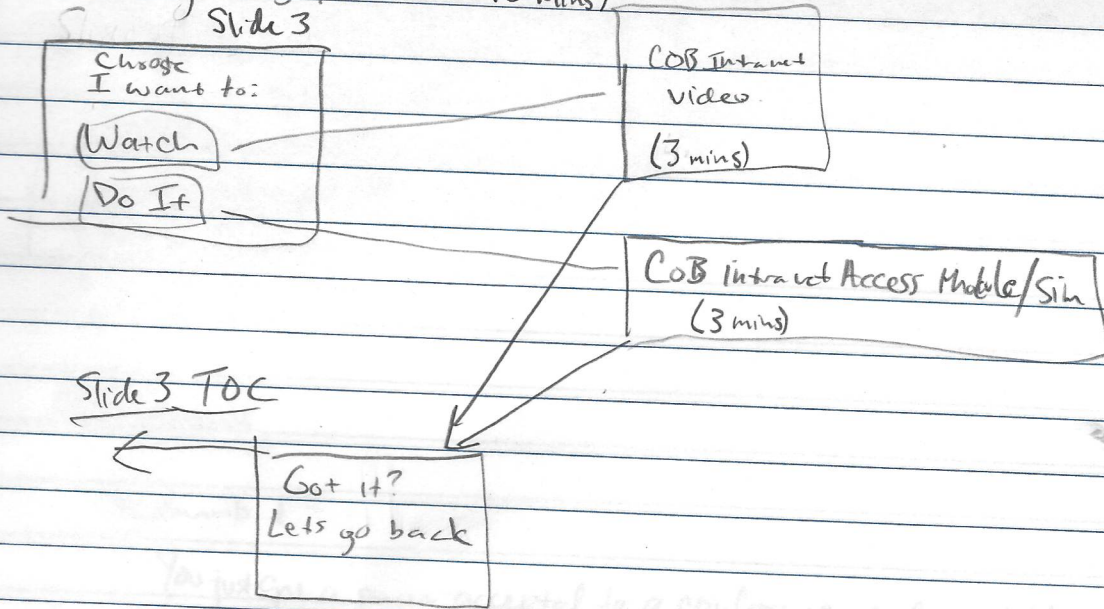 mins)
Slide 3
Choose
I want to:
Watch
Do It
COB Intranet
video
(3 mins)
COB Intranet Access Module/Sim
(3 mins)
Slide 3 TOC
Got it?
Lets go back